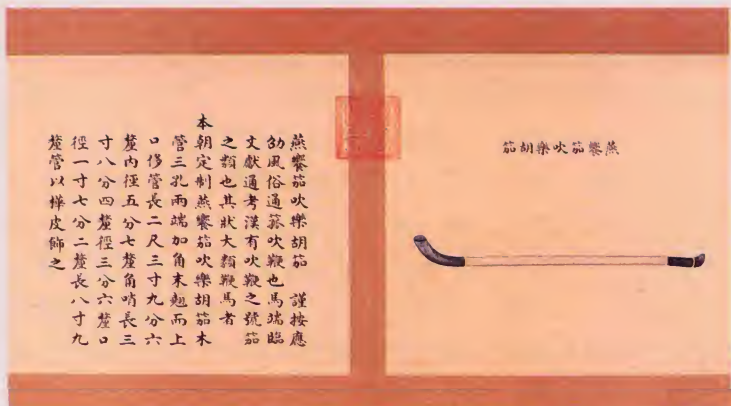 燕饗笳吹樂胡笳
燕饗笳吹樂胡笳 謹按應
劭風俗通箛吹鞭也馬端臨
文獻通考漢有吹鞭之號笳
之類也其狀大類鞭馬者
本朝定制燕饗笳吹樂胡笳木
管三孔兩端加角末翹而上
口侈管長二尺三寸九分六
釐內徑五分七釐角哨長三
寸八分四釐徑三分六釐口
徑一寸七分二釐長八寸九
釐管以樺皮飾之